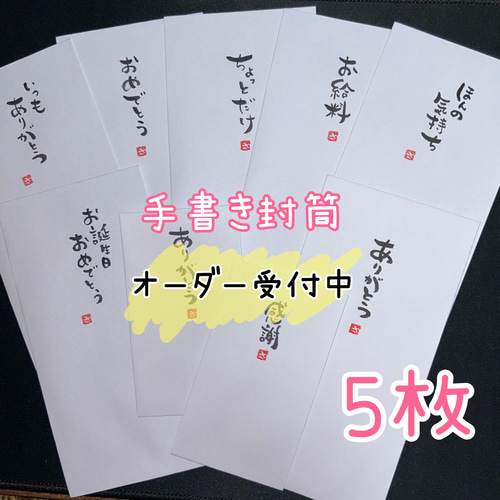 いつも
ありがとう
おめでとう
ちょっとだけ
お給料
ほんの
気持ち
お誕生日
おめでとう
ありがとう
感謝
ありがとう
手書き封筒
オーダー受付中
5枚